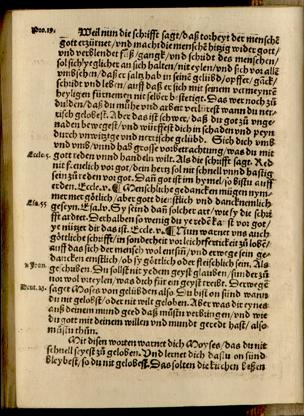 Pro.19.
Weil nun die schifft sagt/ daß torheyt der mensche
gott erzürnet/ vnd macht die menschē hitzig wider gott/
vnd verblendet
solich an sich halten/ nit eylen/ vnd sich vor alle
vmbsehen/ daß er in seinē gelübd/ opffer/
vnd leben/ auß daß er sich mit seinem vermeynten
heyligen fürnemen nit selber Das wer noch zu
dulden/ daß du mühe vnd arbeyt wann du ner-
risch gelobest. Aber das ist schwer/ daß du got zů vnge-
naden bewegest/ vnd wirffest dich in schaden vnd peyn
durch vnwitzige vnd nerrische gelübd. Sich dich vmb
vnd vmb/ vnnd hab grosse vorbetrachtung/ was du mit
Eccle.5.
gott reden vnnd handeln wilt. Als die schrifft sagt. Red
nit frenelich vor got/ dein hertz sol nit schnell vnnd hastig
sein zů reden vor got. Dan got ist im hymel/ so bistu auff
erden. Eccle.v. ¶ Menschliche gedancken mügen nym-
mer met götlich/ aber gott vnd
Esa.55
geseyn. Esaie. Sy seind dañ solcher art/ wie sy die schri
fft ardtet. Derhalben so wenig du vor got/
ye nützer dir das ist. Eccle.v. ¶ Nun warnet vns auch
göttliche schifft/ in sonderheit vor leichfertickeit zů lobē/
auff das sich der mensch wol ensin/ vnd erwege sein ge-
dancken ob sy göttlich oder fleischlich sein. Als
1 Joan.
geschriben. Du sollst nit yedem geyst glauben/ sunder zů
vor wol vrteylen/ was dich für ein geyst treibt. Derwegē
Deut.
saget Moses von gelübden also. Du bist on sünd wann
du nit gelobst/ oder nit wilt geloben. Aber was dir eynes
auß deinem mund geed daß můstu verbringen/ vnd wie
du gott mit deinem willen vnd mundt geredt hast/ also
můstu thun.
Mit disen worten warnet dich Moyses/ das du nit
schnell seyest zů geloben. Vnd lernet dich dastu on sünd
bleybest/ so du nit gelobest. Das solten die kuchen